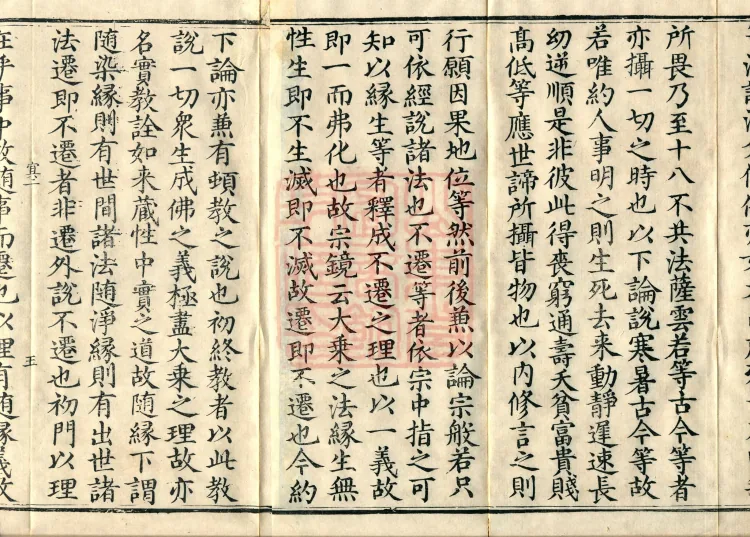 所畏乃至十八不共法薩雲若等古今等者
亦攝一切之時也以下論說寒暑古今等故
若唯約人事明之則生死去来動靜遲速長
幼逆順是非彼此得喪窮通壽夭貧富貴賤
髙低等應世諦所攝皆物也以内修言之則
行願因果地位等然前後兼以論宗般若只
可依經說諸法也不遷等者依宗中指之可
知以縁生等者釋成不遷之理也以一義故
即一而弗化也故宗鏡云大乗之法縁生無
性生即不生滅即不滅故遷即不遷也今約
下論亦兼有頓教之說也初終教者以此教
說一切衆生成佛之義極盡大乗之理故亦
名實教詮如来蔵性中實之道故随縁下謂
随染縁則有世間諸法随淨縁則有出世諸
法遷即不遷者非遷外說不遷也初門以理
王
在乎事中故随事而遷也以理有随縁義故